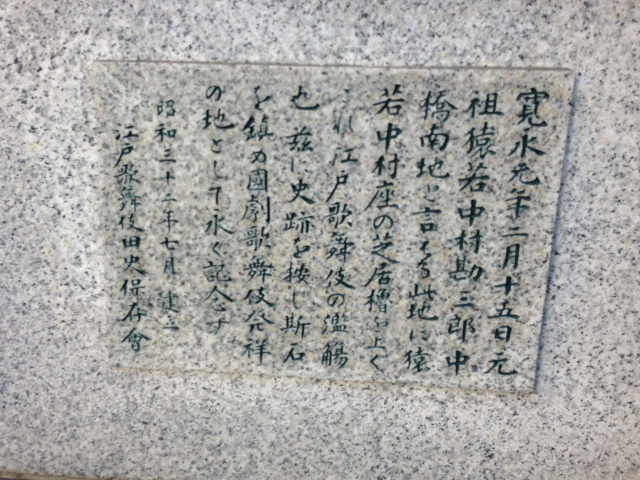 寛永元年二月十五日元
祖猿若中村勘三郎中
橋南地と言へる此地に猿
若中村座の芝居櫓を上く
これ江戸歌舞伎の濫觴
也茲に史跡を按し斯石
を鎮め國劇歌舞伎発祥
の地として永く記念す
昭和三十二年七月 建之
江戸歌舞伎旧史保存會